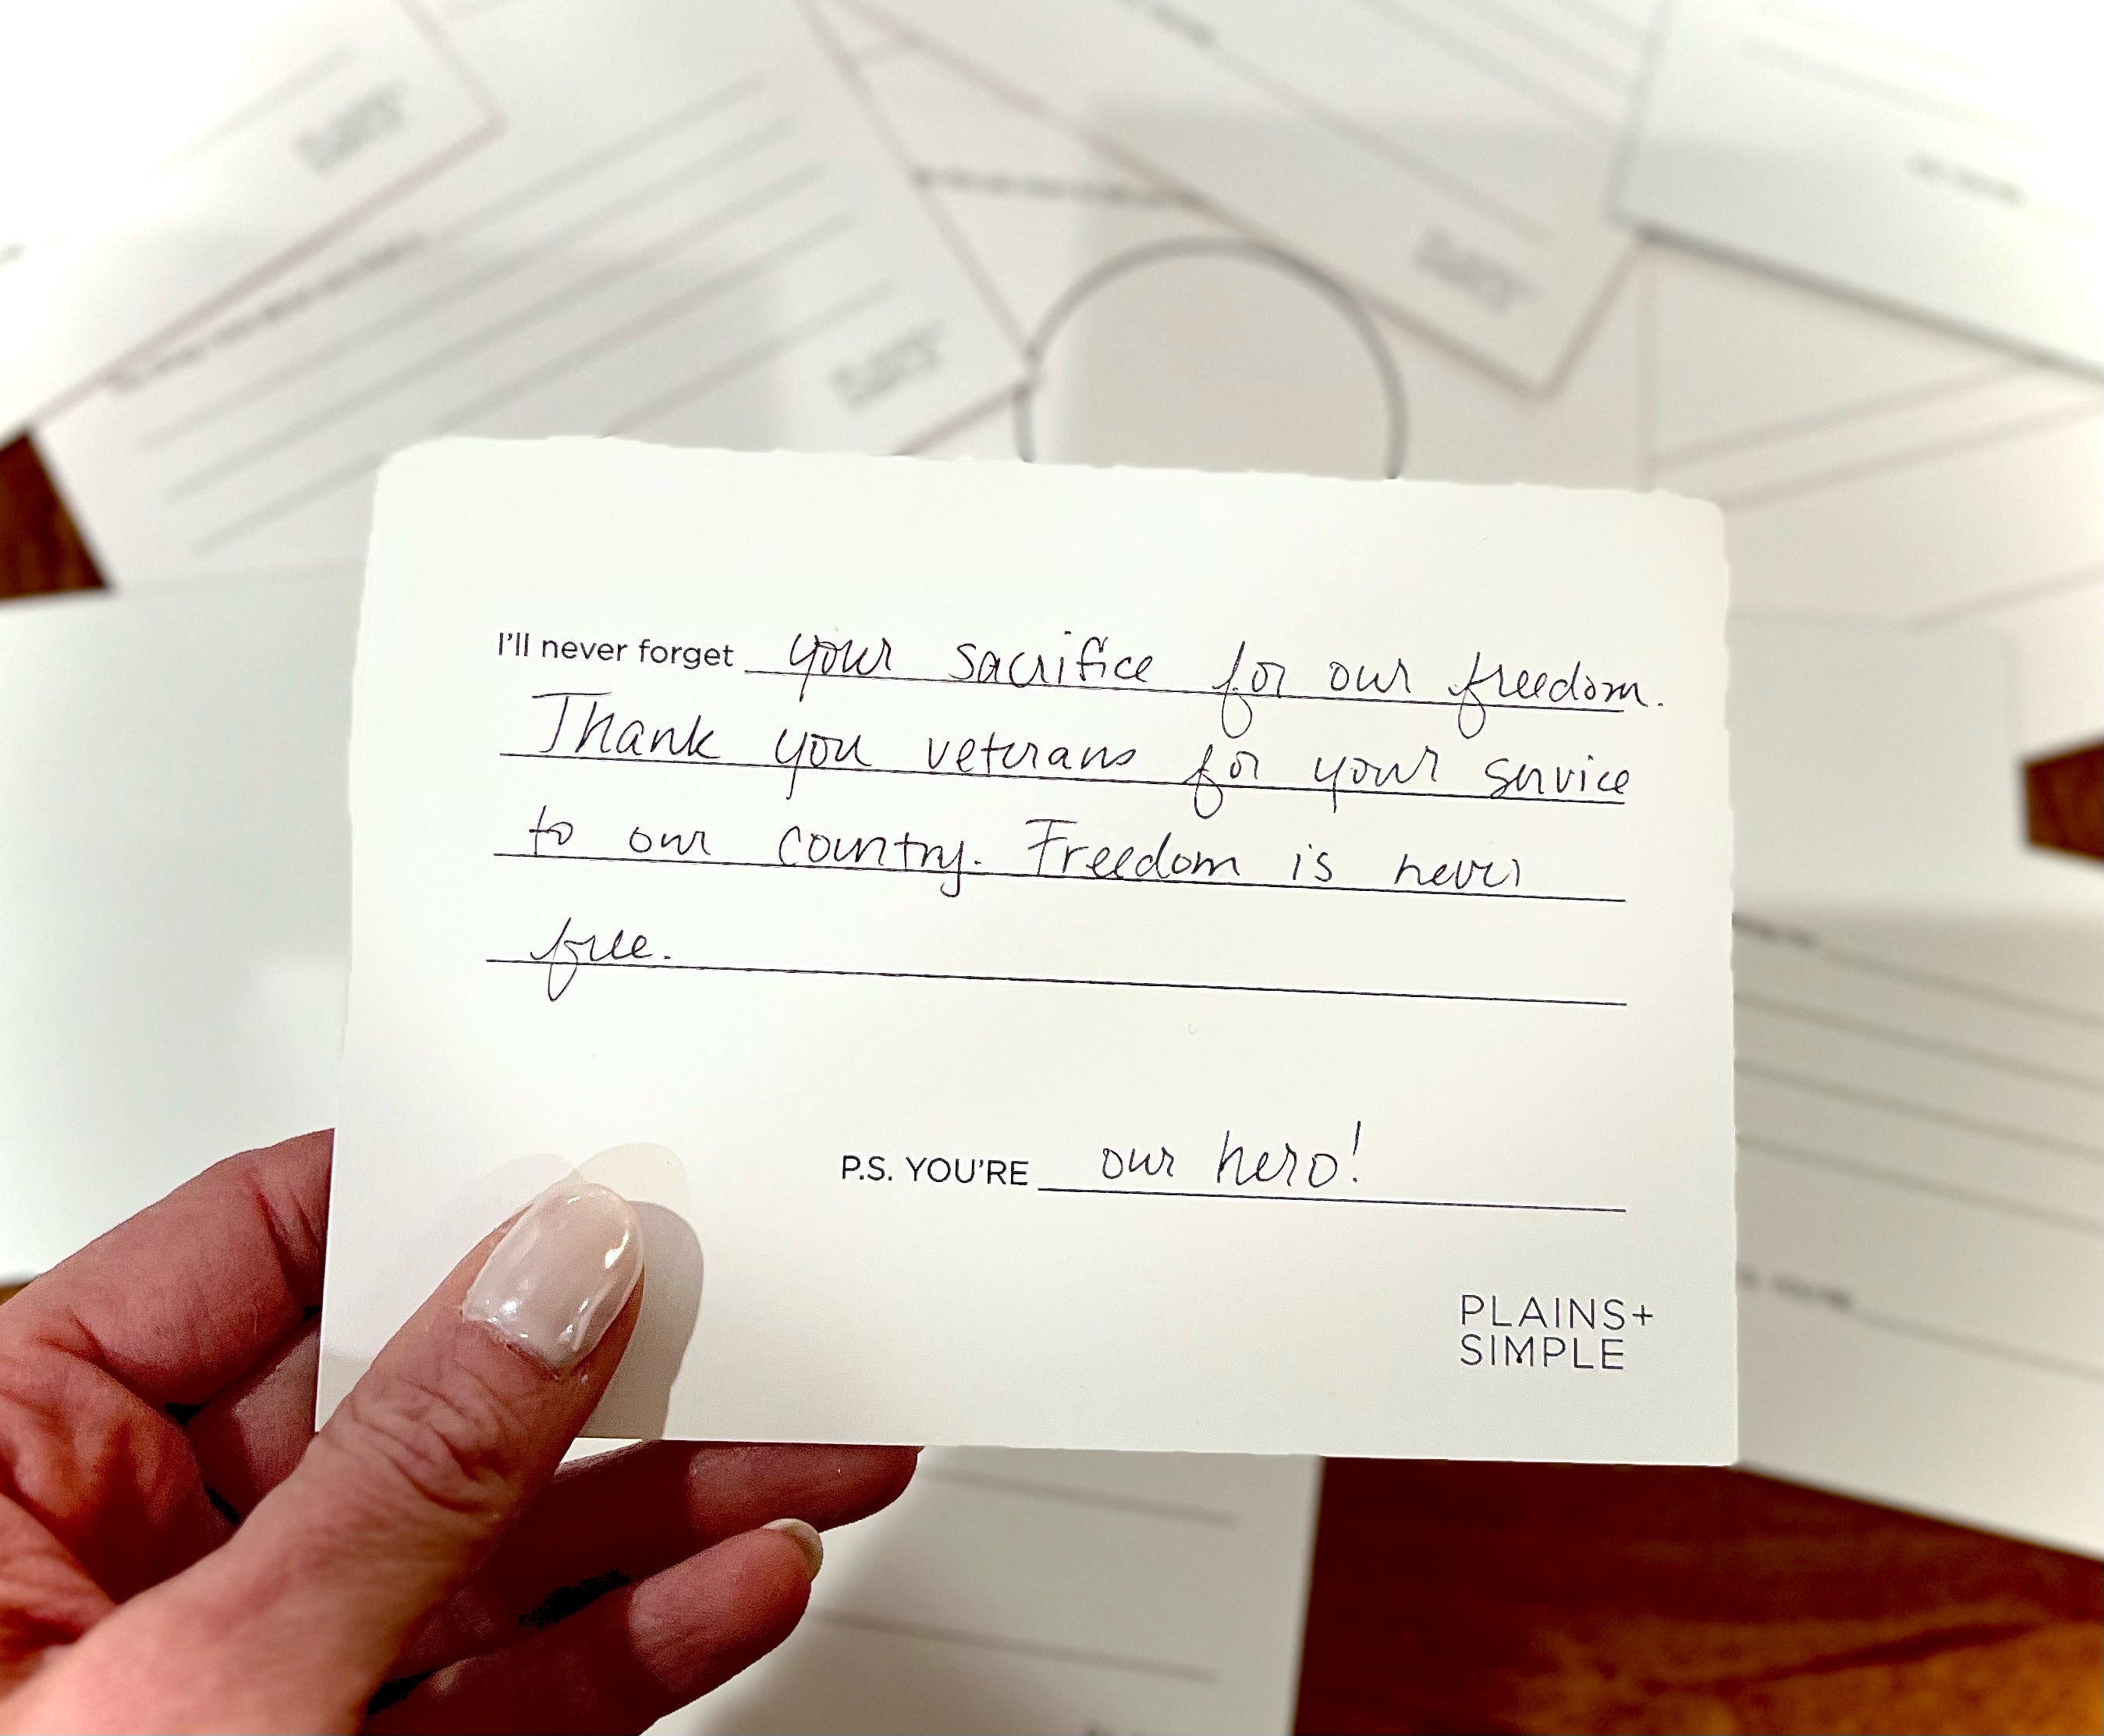 I'll never forget your sacrifice for our freedom.
Thank you veterans for your service
to our country. Freedom is never
free.
P.S. YOU'RE our hero!
PLAINS+
SIMPLE